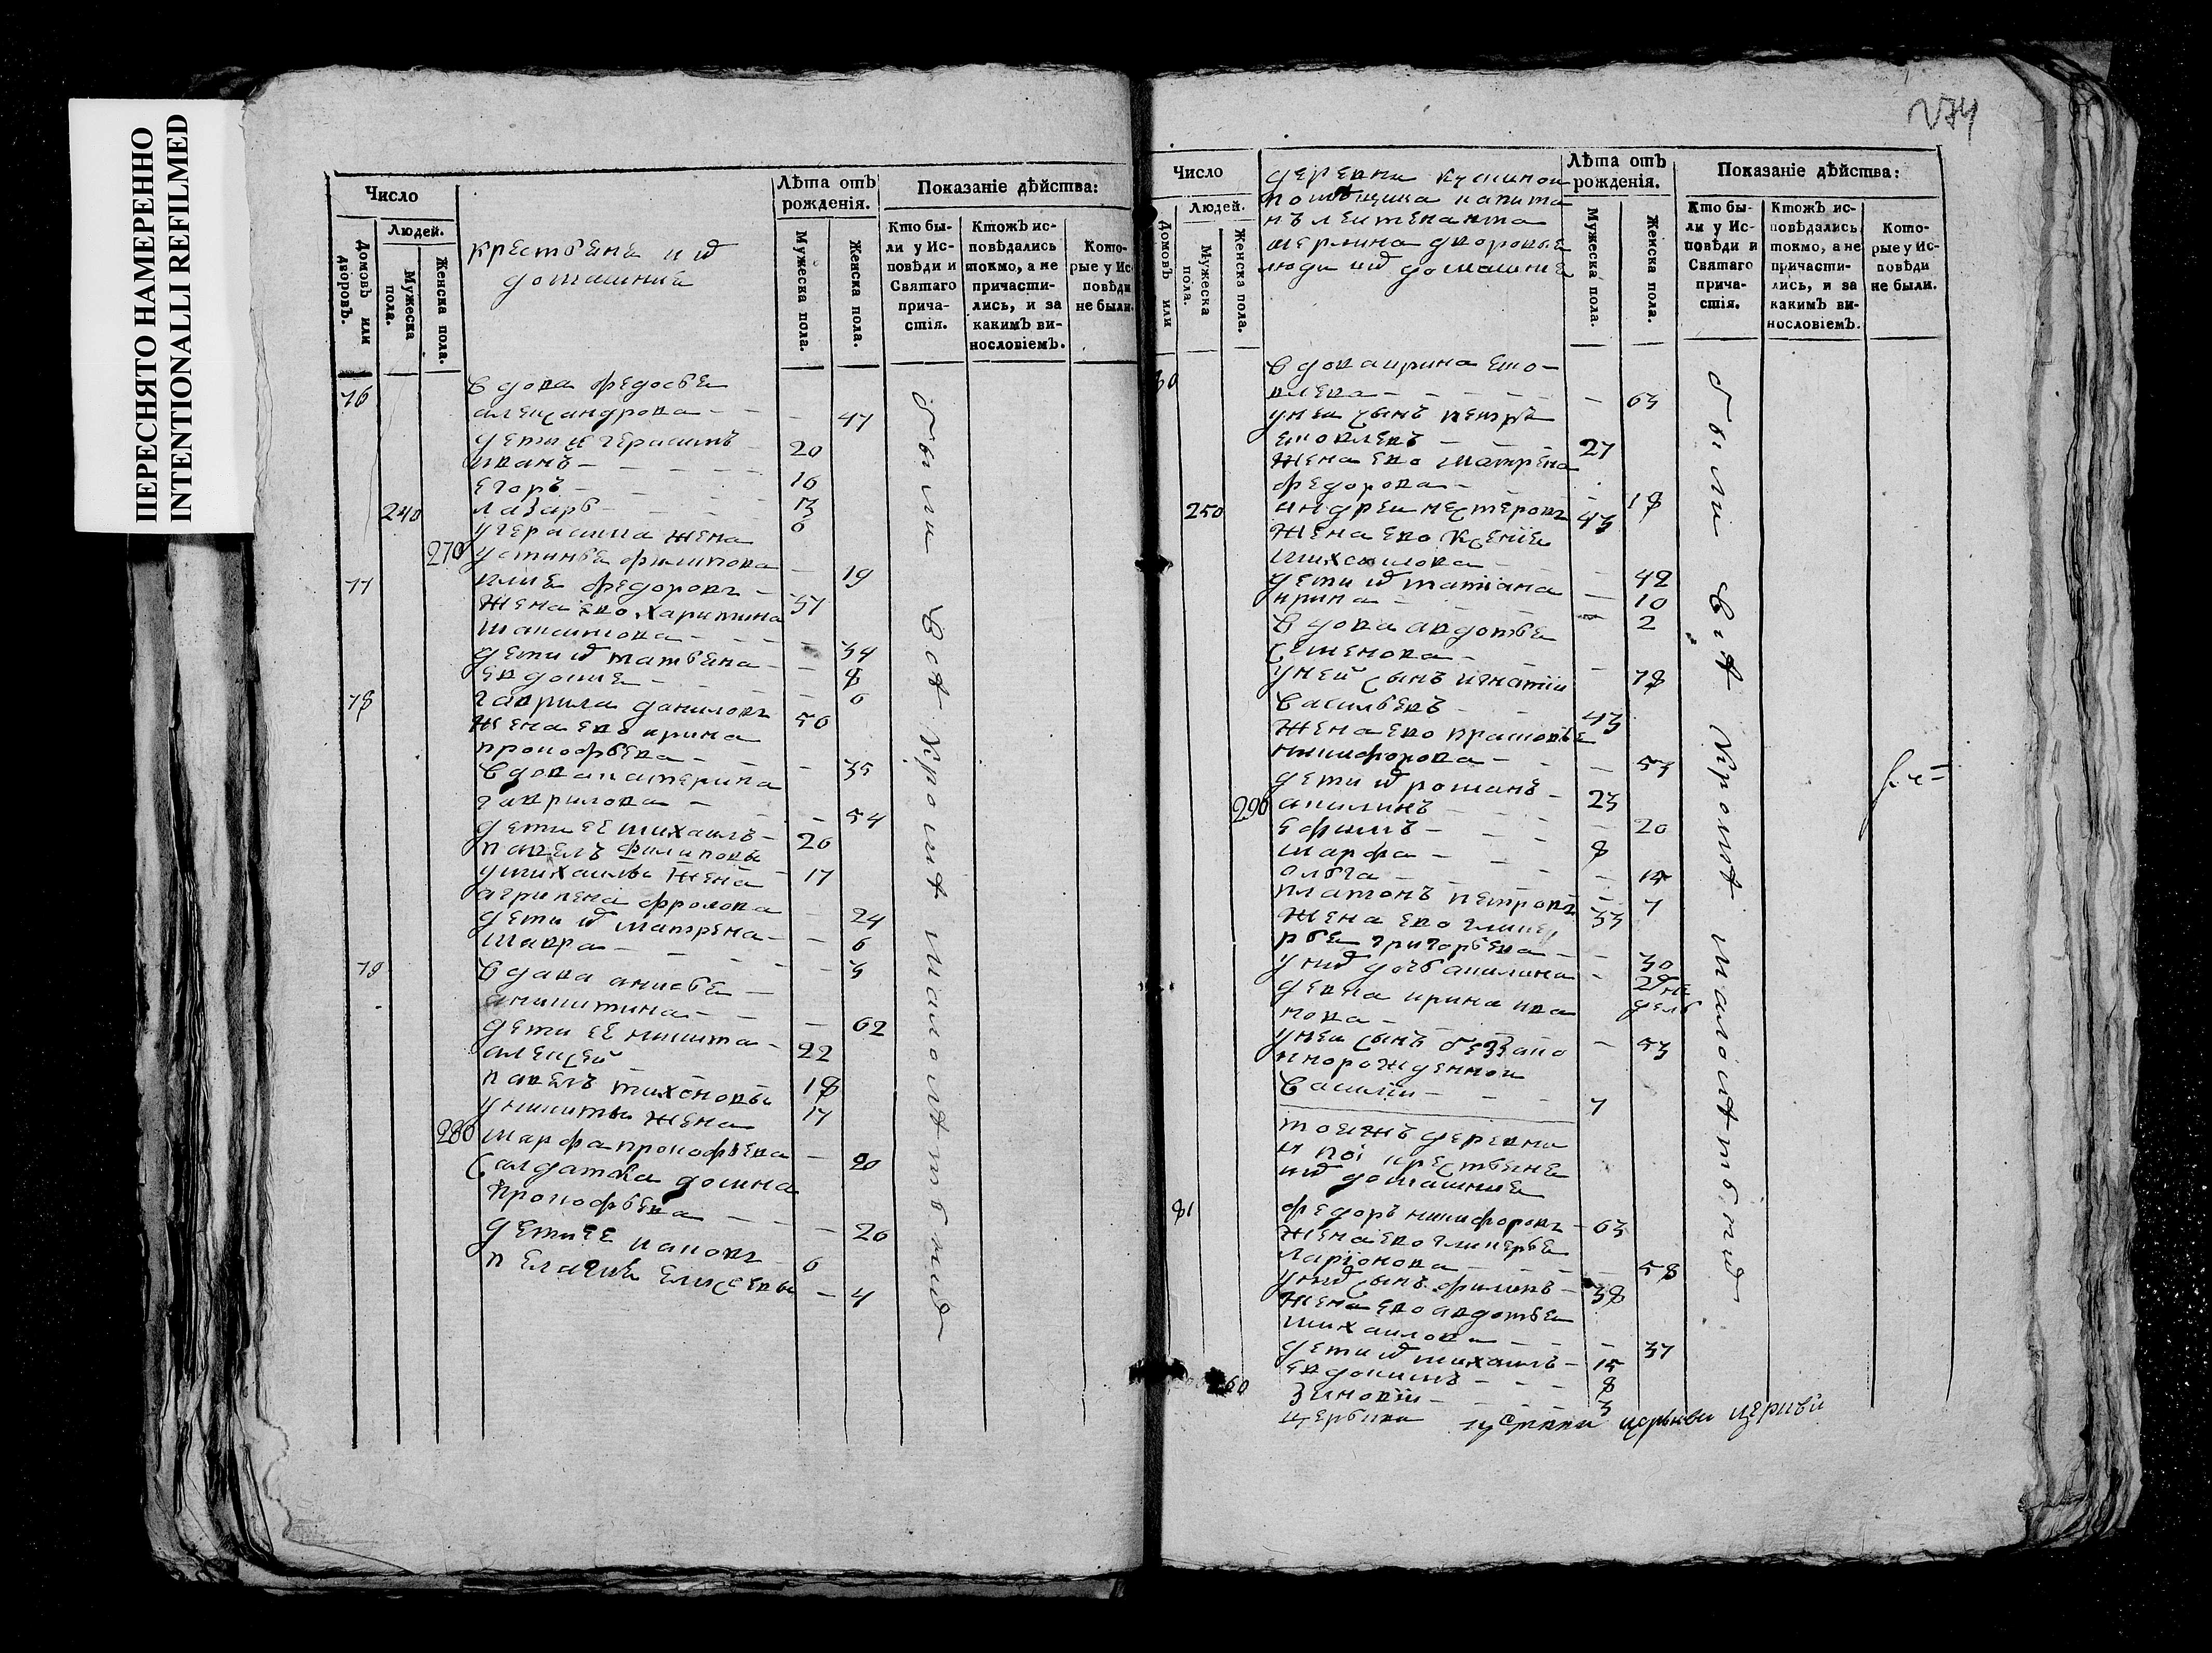 ПЕРЕСНЯТО НАМЕРЕННО
INTENTIONALLI REFILMED
Число
Людей.
Домовъ или дворовъ.
Мужеска пола.
Женска пола.
крестьяня и ихъ
домашния
Лѣта отъ рожденія.
Мужеска пола.
Женска пола.
Показаніе дѣйства:
Кто были у Исповѣди и Святаго причастія.
Ктожъ исповѣдались токмо, а не причастились, и за какимъ винословіемъ.
Которые у Исповѣди не были.
76 вдова федосья
александрова - 47
дети ея герасимъ 20
иванъ - 16
егоръ - 13
240 лазарь - 6
у герасима жена
270 устинья филипова - 19
77 илия федоровъ - 37
жена ево харитина
максимова - 34
дети их татьяна - 8
евдокия - 6
78 гаврила даниловъ 50
жена ево ирина
прокофьева - 35
вдова катерина
гаврилова - 54
дети ее михаилъ - 26
павелъ филиповы 17
у михаилы жена
агрипена фролова 24
дети их матрена - 6
мавра - 3
79 вдова анисья
аникитина - 62
дети ее никита - 22
алексей 18
павелъ тихоновы 17
у никиты жена
280 марфа прокофьева - 20
салдатка домна
прокофьева - 26
дети ее иаковъ - 6
пелагия елисеевы - 4
были вси кроме малолетных
274
Число
Людей.
Домовъ или
Мужеска пола.
Женска пола.
деревни кушиной
помещика капита
нъ леитенанта
мерлина дворовые
люди и ихъ домашния
Лѣта отъ рожденія.
Мужеска пола.
Женска пола.
Показаніе дѣйства:
Кто были у Исповѣди и Святаго причастія.
Ктожъ исповѣдались токмо, а не причастились, и за какимъ винословіемъ.
Которые у Исповѣди не были.
80 вдова ирина
63
у неи сынъ петръ
27
жена ево матрена
федорова - 18
250 андреи нестеровъ 43
жена ево ксения
михаилова - 42
дети их татиана 10
ирина - 2
вдова авдотья
семенова - 78
у ней сынъ игнатии
васильевъ 43
жена ево прасковья
никифорова - 53
дети их романъ - 23
290 20
ефимъ - 8
марфа - 15
олга - 7
платонъ петровъ 33
жена ево глике
рья григорьева - 30
у них дочь акилина - 2
недель
девка ирина ива
нова - 53
у неи сынъ беззако
норожденнои
василии - 7
тоежъ деревни
крестьяне
и ихъ домашния
81 федоръ никифоровъ - 63
жена ево гликерья
ларионова - 58
у них сынъ филипъ - 38
жена ево авдотья
михаилова - 37
дети их михаилъ - 15
евдокимъ - 8
260 зиновии - 3
были вси кроме малолетных